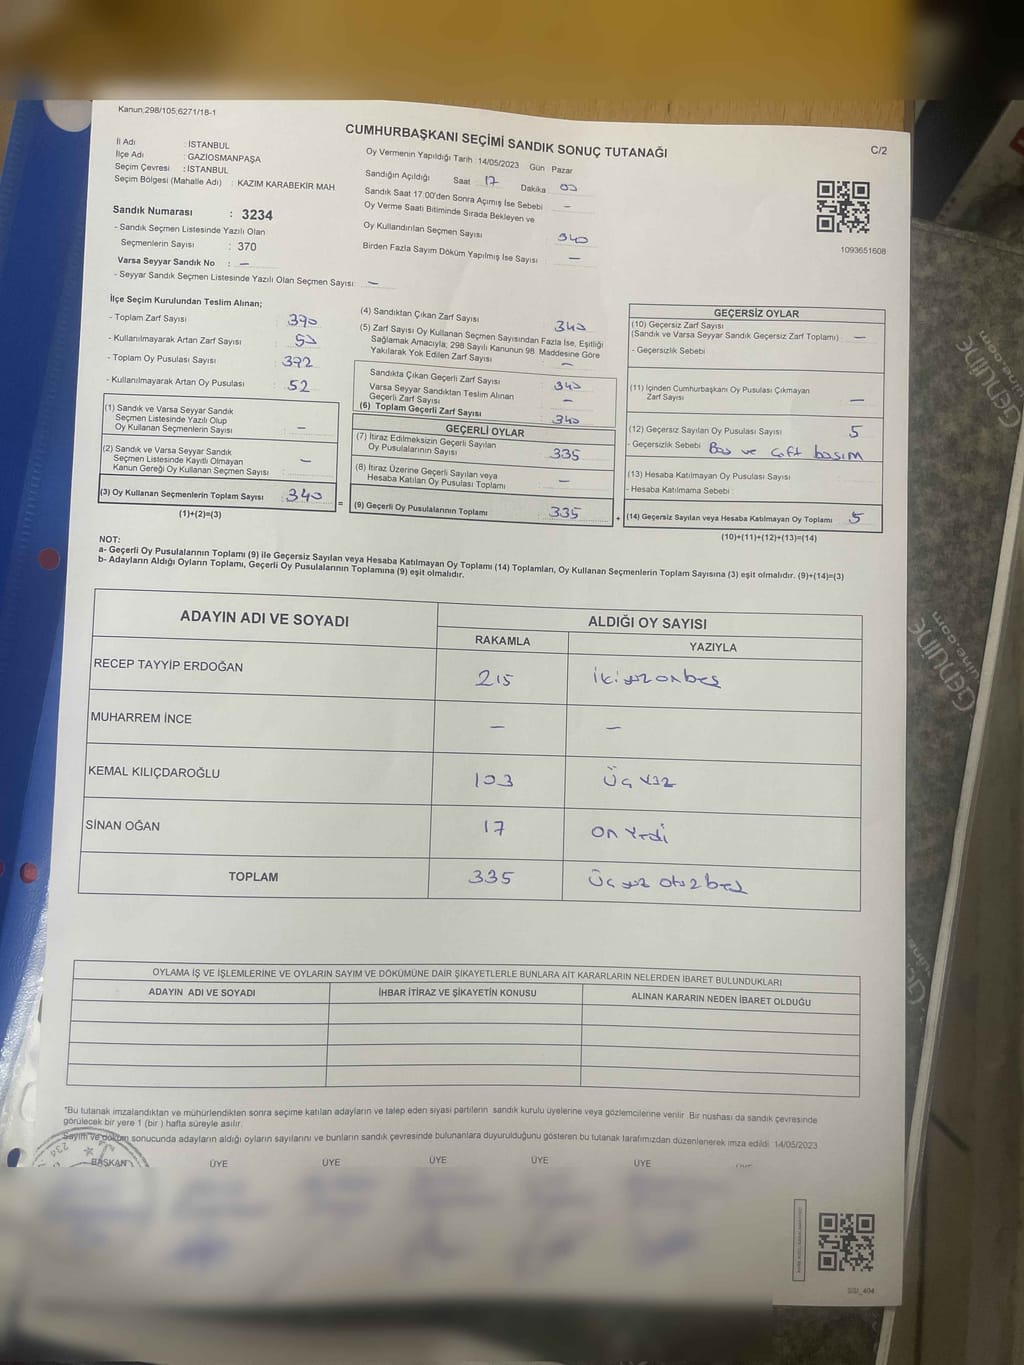 Kanun;298/105;6271/18-1
CUMHURBAŞKANI SEÇİMİ SANDIK SONUÇ TUTANAĞI
C/2
İl Adı : İSTANBUL
İlçe Adı : GAZİOSMANPAŞA
Seçim Çevresi : İSTANBUL
Seçim Bölgesi (Mahalle Adı) : KAZIM KARABEKİR MAH
Sandık Numarası : 3234
- Sandık Seçmen Listesinde Yazılı Olan
Seçmenlerin Sayısı : 370
Varsa Seyyar Sandık No : –
- Seyyar Sandık Seçmen Listesinde Yazılı Olan Seçmen Sayısı: –
Oy Vermenin Yapıldığı Tarih :14/05/2023 Gün : Pazar
Sandığın Açıldığı Saat 17 Dakika 00
Sandık Saat 17:00'den Sonra Açımış İse Sebebi –
Oy Verme Saati Bitiminde Sırada Bekleyen ve
Oy Kullandırılan Seçmen Sayısı 340
Birden Fazla Sayım Döküm Yapılmış İse Sayısı –
1093651608
İlçe Seçim Kurulundan Teslim Alınan;
- Toplam Zarf Sayısı 390
- Kullanılmayarak Artan Zarf Sayısı 50
- Toplam Oy Pusulası Sayısı 392
- Kullanılmayarak Artan Oy Pusulası 52
(1) Sandık ve Varsa Seyyar Sandık
Seçmen Listesinde Yazılı Olup
Oy Kullanan Seçmenlerin Sayısı –
(2) Sandık ve Varsa Seyyar Sandık
Seçmen Listesinde Kayıtlı Olmayan
Kanun Gereği Oy Kullanan Seçmen Sayısı –
(3) Oy Kullanan Seçmenlerin Toplam Sayısı 340
(1)+(2)=(3)
(4) Sandıktan Çıkan Zarf Sayısı 340
(5) Zarf Sayısı Oy Kullanan Seçmen Sayısından Fazla İse, Eşitliği
Sağlamak Amacıyla; 298 Sayılı Kanunun 98. Maddesine Göre
Yakılarak Yok Edilen Zarf Sayısı –
Sandıkta Çıkan Geçerli Zarf Sayısı 340
Varsa Seyyar Sandıktan Teslim Alınan
Geçerli Zarf Sayısı –
(6) Toplam Geçerli Zarf Sayısı 340
GEÇERLİ OYLAR
(7) İtiraz Edilmeksizin Geçerli Sayılan
Oy Pusulalarının Sayısı 335
(8) İtiraz Üzerine Geçerli Sayılan veya
Hesaba Katılan Oy Pusulası Toplamı –
= (9) Geçerli Oy Pusulalarının Toplamı 335
GEÇERSİZ OYLAR
(10) Geçersiz Zarf Sayısı
(Sandık ve Varsa Seyyar Sandık Geçersiz Zarf Toplamı) –
- Geçersizlik Sebebi
(11) İçinden Cumhurbaşkanı Oy Pusulası Çıkmayan
Zarf Sayısı –
(12) Geçersiz Sayılan Oy Pusulası Sayısı 5
- Geçersizlik Sebebi Boş ve Çift basım
(13) Hesaba Katılmayan Oy Pusulası Sayısı
- Hesaba Katılmama Sebebi :
+ (14) Geçersiz Sayılan veya Hesaba Katılmayan Oy Toplamı 5
(10)+(11)+(12)+(13)=(14)
NOT:
a- Geçerli Oy Pusulalarının Toplamı (9) ile Geçersiz Sayılan veya Hesaba Katılmayan Oy Toplamı (14) Toplamları, Oy Kullanan Seçmenlerin Toplam Sayısına (3) eşit olmalıdır. (9)+(14)=(3)
b- Adayların Aldığı Oyların Toplamı, Geçerli Oy Pusulalarının Toplamına (9) eşit olmalıdır.
ADAYIN ADI VE SOYADI
ALDIĞI OY SAYISI
RAKAMLA
YAZIYLA
RECEP TAYYİP ERDOĞAN 215 İkiyüz onbeş
MUHARREM İNCE – –
KEMAL KILIÇDAROĞLU 103 Üç yüz
SİNAN OĞAN 17 On Yedi
TOPLAM 335 Üç yüz otuz beş
OYLAMA İŞ VE İŞLEMLERİNE VE OYLARIN SAYIM VE DÖKÜMÜNE DAİR ŞİKAYETLERLE BUNLARA AİT KARARLARIN NELERDEN İBARET BULUNDUKLARI
ADAYIN ADI VE SOYADI
İHBAR İTİRAZ VE ŞİKAYETİN KONUSU
ALINAN KARARIN NEDEN İBARET OLDUĞU
*Bu tutanak imzalandıktan ve mühürlendikten sonra seçime katılan adayların ve talep eden siyasi partilerin sandık kurulu üyelerine veya gözlemcilerine verilir. Bir nüshası da sandık çevresinde
görülecek bir yere 1 (bir ) hafta süreyle asılır.
Sayım ve döküm sonucunda adayların aldığı oyların sayılarını ve bunların sandık çevresinde bulunanlara duyurulduğunu gösteren bu tutanak tarafımızdan düzenlenerek imza edildi. 14/05/2023
BAŞKAN ÜYE ÜYE ÜYE ÜYE ÜYE
GENUINE
GENUINE